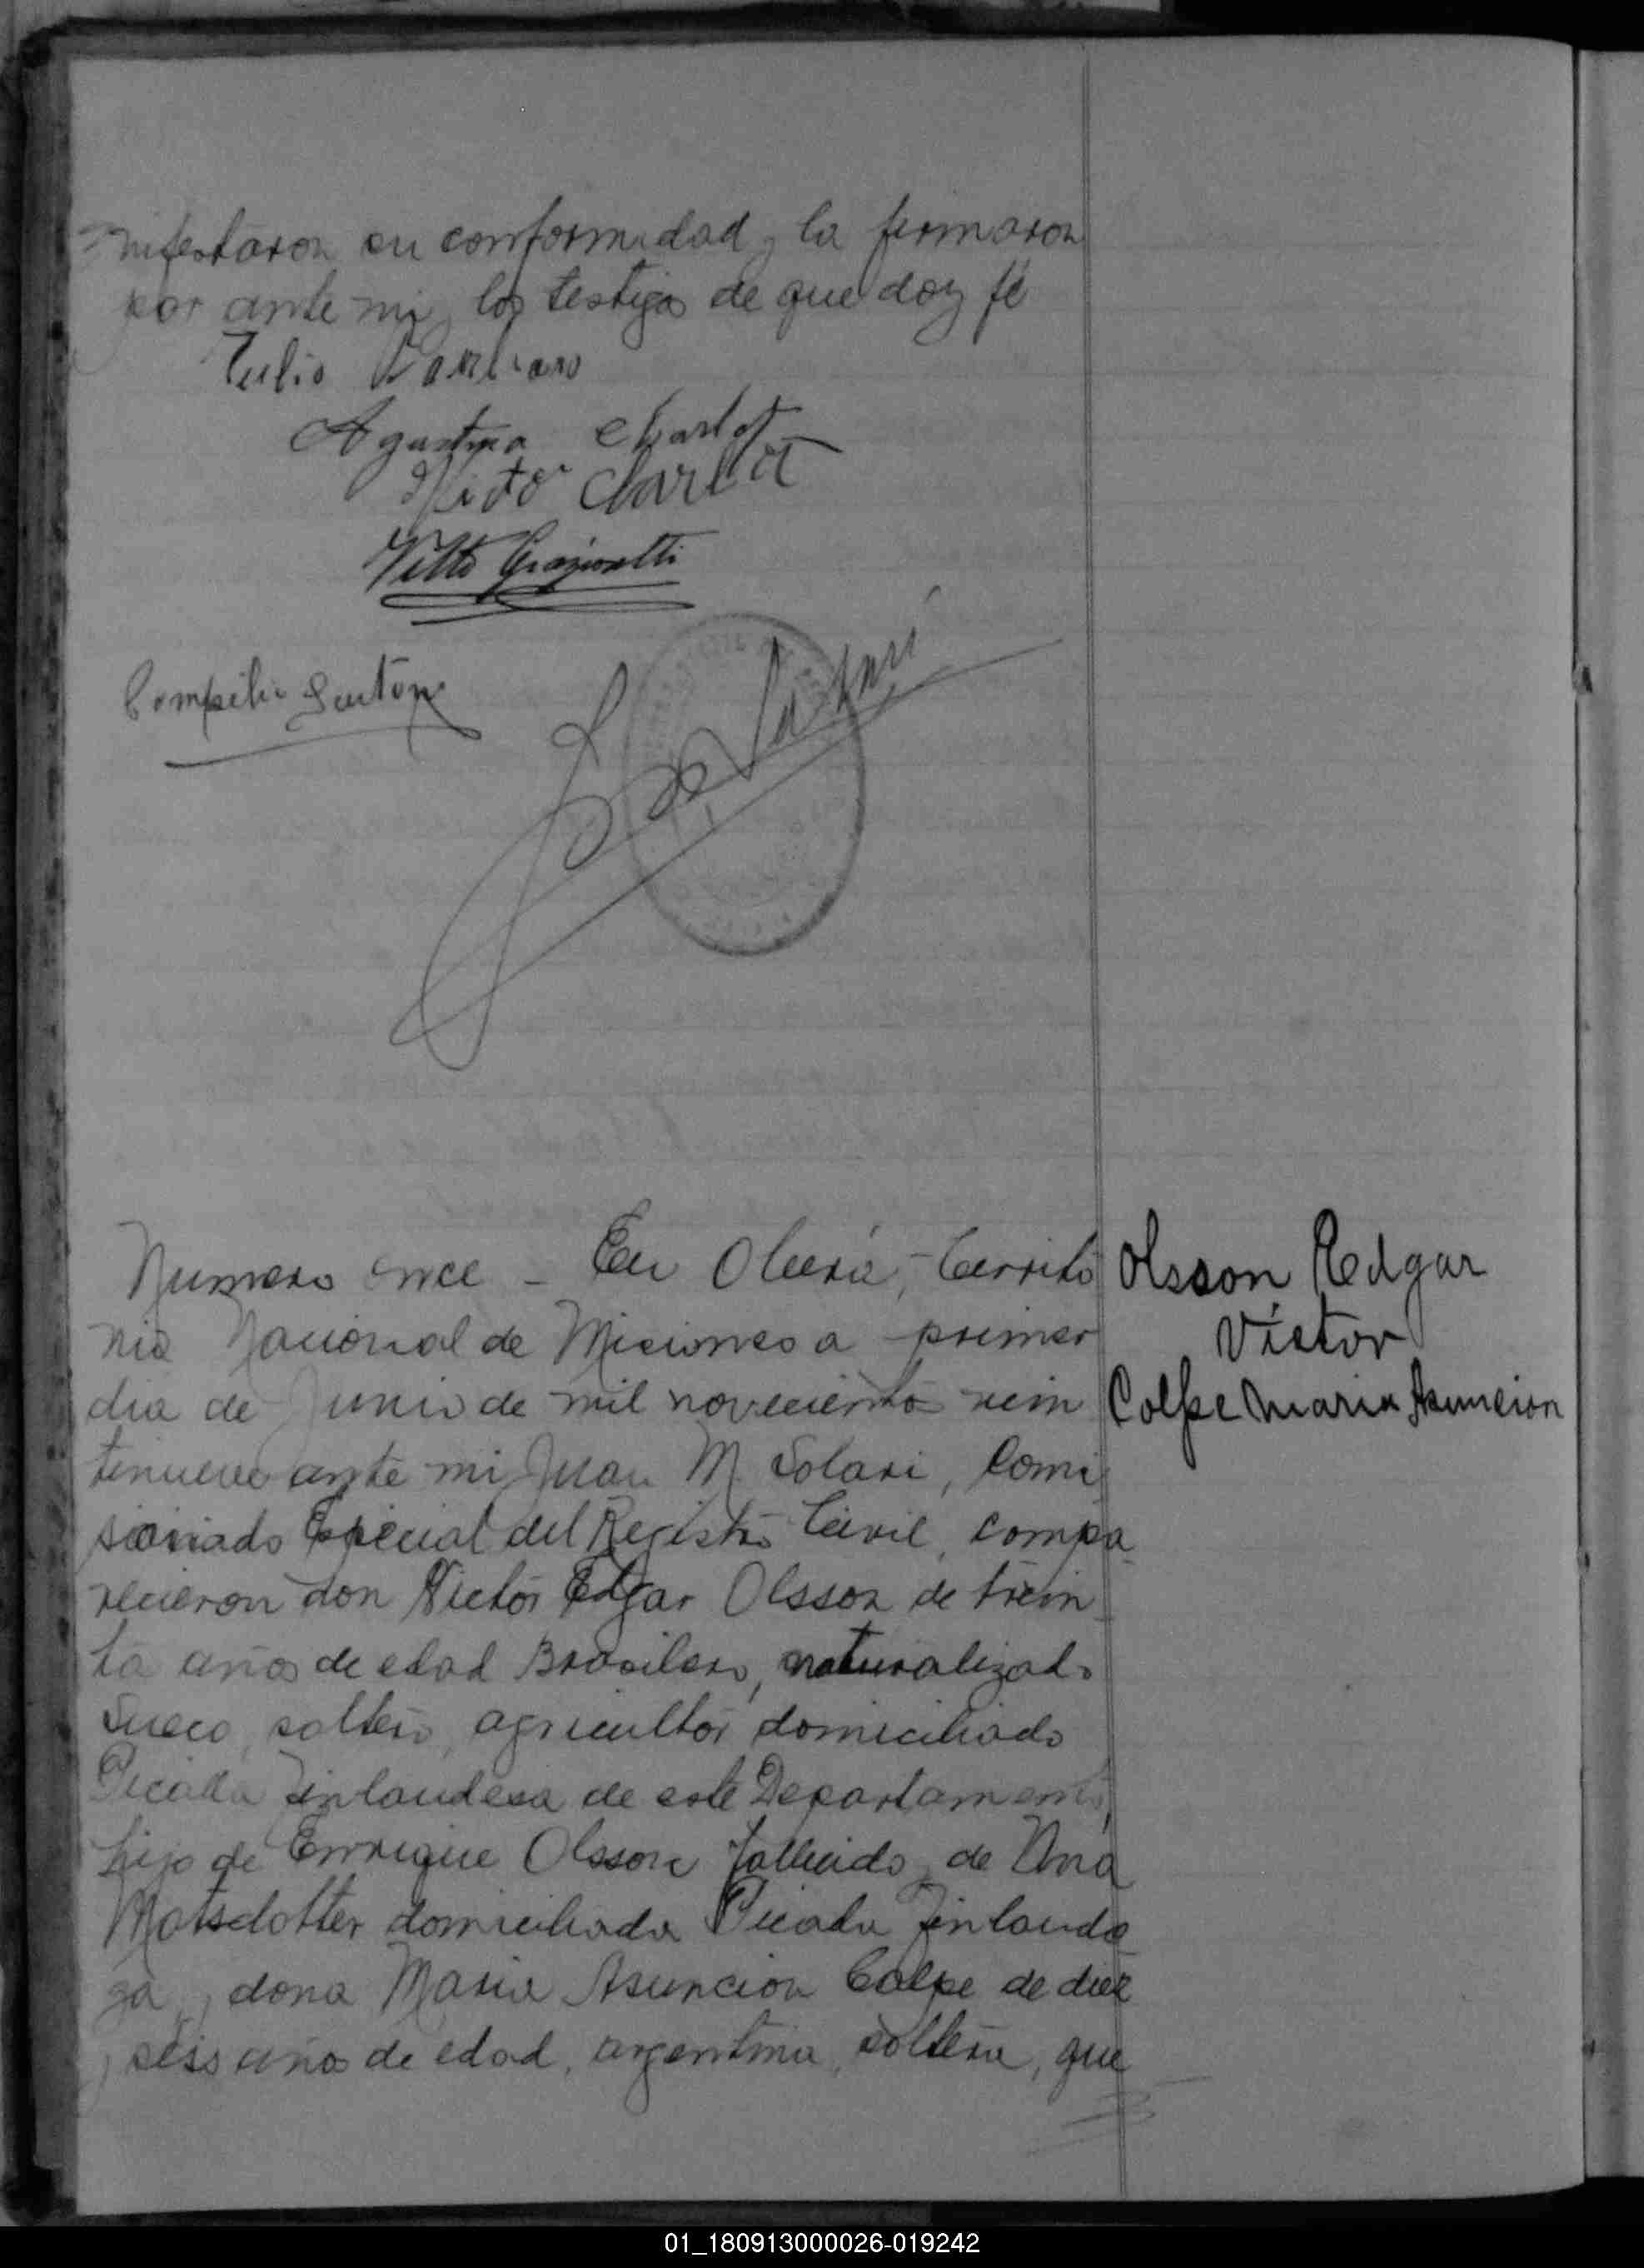 nifestaron su conformidad y la firmaron
por ante mi y los testigos de que doy fé
Tulio
Agustina Charlot
Charlot
Vitto Grazioselli
Solari
Numero once - En Oberá, Territo
rio Nacional de Misiones a primer
dia de Junio de mil novecientos vein
tinueve ante mi Juan M. Solari, Comi
sionado Especial del Registro Civil, compa
recieron don Victor Edgar Olsson de trein
ta años de edad Brasilero, naturalizado
Sueco, soltero, agricultor domiciliado
Picada Finlandesa de este Departamento,
hijo de Enrique Olsson fallecido y de Ana
Matsdotter domiciliada Picada Finlande
sa y dona Maria Asuncion Colpe de diez
y seis años de edad, argentina, soltera, que
Olsson Edgar
Víctor
Colpe Maria Asuncion
01_180913000026-019242